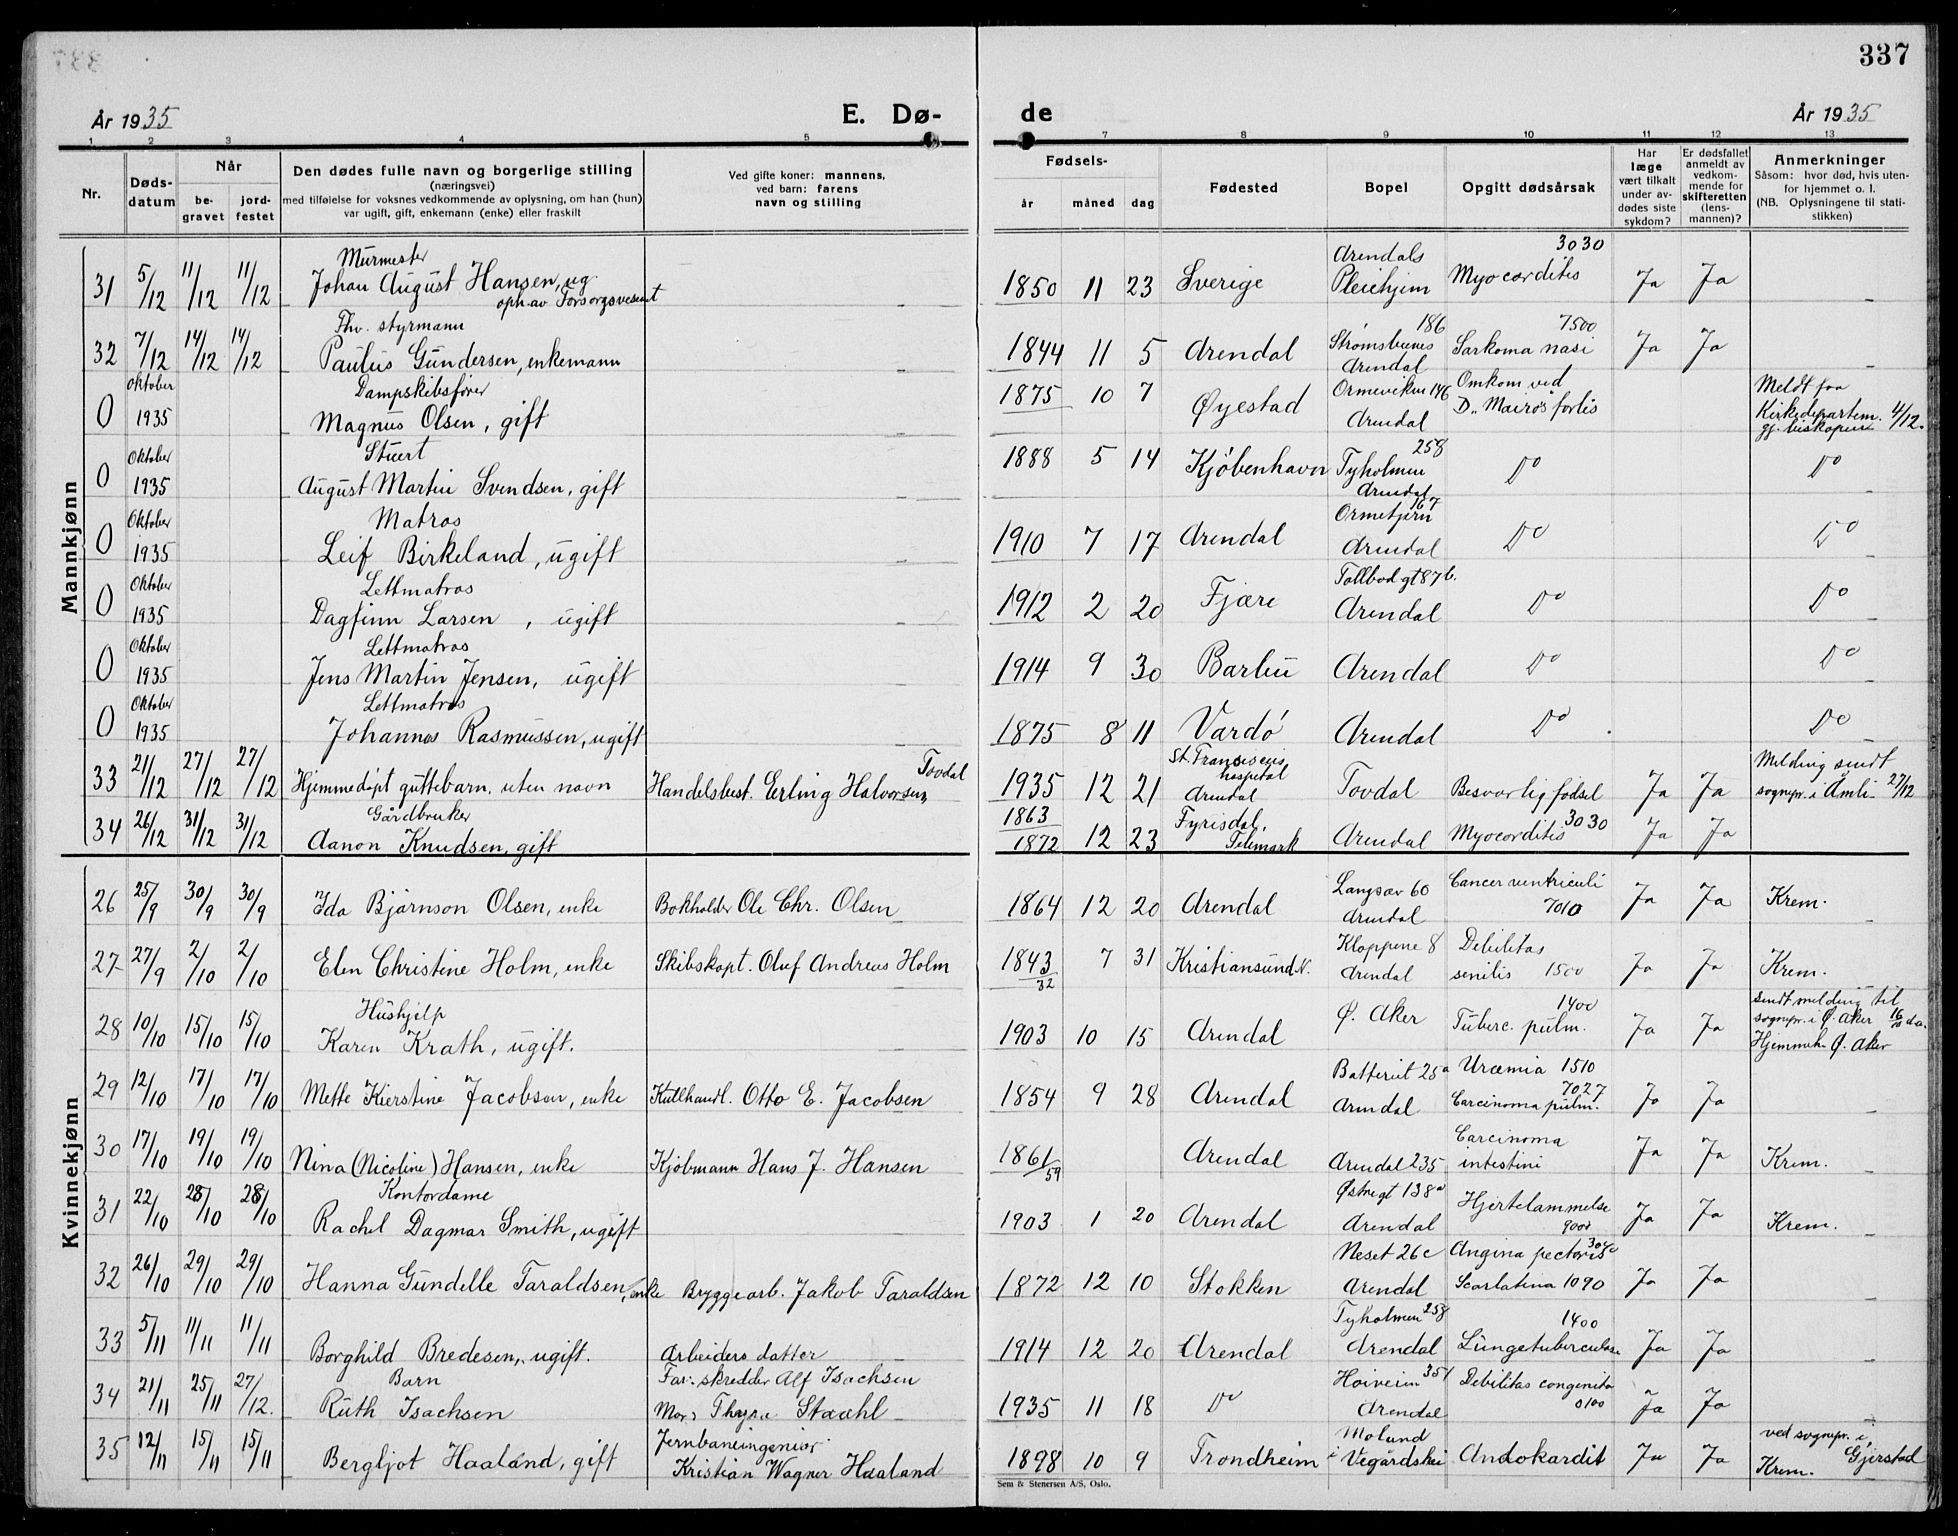 337
År 1935
E. Dø-
de
År 1935
1 2 3 4 5 7 8 9 10 11 12 13
Nr.
Døds-
datum
Når
be-
gravet
jord-
festet
Den dødes fulle navn og borgerlige stilling
(næringsvei)
med tilføielse for voksnes vedkommende av oplysning, om han (hun)
var ugift, gift, enkemann (enke) eller fraskilt
Ved gifte koner: mannens,
ved barn: farens
navn og stilling
Fødsels-
år måned dag
Fødested
Bopel
Opgitt dødsårsak
Har
læge
vært tilkalt
under av-
dødes siste
sykdom?
Er dødsfallet
anmeldt av
vedkom-
mende for
skifteretten
(lens-
mannen)?
Anmerkninger
Såsom: hvor død, hvis uten-
for hjemmet o. l.
(NB. Oplysningene til stati-
stikken)
Mannkjønn
31 5/12 11/12 11/12 Murmester
Johan August Hansen, ug.
oph. av Forsorgsvesenet
1850 11 23 Sverige Arendals Pleiehjem Myocarditis 3030 Ja Ja
32 7/12 14/12 14/12 Fhv. styrmann
Paulus Gundersen, enkemann
1844 11 5 Arendal Strømsbunes 186 Arendal Sarkoma nasi 7500 Ja Ja
0 Oktober 1935 Dampskibsfører
Magnus Olsen, gift
1875 10 7 Øyestad Ormeviken 146 Arendal Omkom ved D. "Mairos" forlis Meldt fra Kirkedepartem. gj. biskopen 4/12.
0 Oktober 1935 Stuert
August Martin Svendsen, gift
1888 5 14 Kjøbenhavn Tyholmen 258 Arendal Do Do
0 Oktober 1935 Matros
Leif Birkeland, ugift
1910 7 17 Arendal 167 Arendal Do Do
0 Oktober 1935 Lettmatros
Dagfinn Larsen, ugift
1912 2 20 Fjære Tollbodgt 87b. Arendal Do Do
0 Oktober 1935 Lettmatros
Jens Martin Jensen, ugift
1914 9 30 Barbu Arendal Do Do
0 Oktober 1935 Lettmatros
Johannes Rasmussen, ugift
1875 8 11 Vardø Arendal Do Do
33 21/12 27/12 27/12 Hjemmedøpt guttebarn, uten navn Handelsbest. Erling Halvorsen, Tovdal
1935 12 21 St. Franciscus hospital Arendal Tovdal Besværlig fødsel Ja Ja Melding sendt sognepr. i Åmli 27/12
34 26/12 31/12 31/12 Gårdbruker
Aanon Knudsen, gift
1863 1872 12 23 Fyrisdal, Telemark Arendal Myocarditis 3030 Ja Ja
Kvinnekjønn
26 25/9 30/9 30/9 Ida Bjørnson Olsen, enke Bokholder Ole Chr. Olsen
1864 12 20 Arendal Langsæv 60 Arendal Cancer ventriculi 7010 Ja Ja Krem.
27 27/9 2/10 2/10 Elen Christine Holm, enke Skibskapt. Oluf Andreas Holm
1843 32 7 31 Kristiansund N. Kloppene 8 Arendal Debilitas senilis 1500 Ja Ja Krem.
28 10/10 15/10 15/10 Hushjelp
Karen Krath, ugift.
1903 10 15 Arendal Ø. Aker Tuberc. pulm. 1400 Ja Ja Sendt melding til sognepr. i Ø. Aker 16/10 d.a. Hjemmeh. Ø. Aker
29 12/10 17/10 17/10 Mette Kierstine Jacobsen, enke Kullhandl. Otto E. Jacobsen
1854 9 28 Arendal Batteriet 25a Arendal Uræmia 1510 Carcinoma pulm. 7027 Ja Ja
30 17/10 19/10 19/10 Nina (Nicoline) Hansen, enke Kjøbmann Hans J. Hansen
1861 59 Arendal Arendal 235 Carcinoma intestini Ja Ja Krem.
31 22/10 28/10 28/10 Kontordame
Rachel Dagmar Smith, ugift
1903 1 20 Arendal Østregt 138a Arendal Hjertelammelse 9000 Ja Ja Krem.
32 26/10 29/10 29/10 Hanna Gundelle Taraldsen, enke Bryggearb. Jakob Taraldsen
1872 12 10 Stokken Neset 26c Arendal Angina pectoris Scarlatina 1090 Ja Ja
33 5/11 11/11 11/11 Borghild Bredesen, ugift. Arbeiders datter
1914 12 20 Arendal Tyholmen 258 Arendal Lungetuberculose 1400 Ja Ja
34 21/11 25/11 27/12. Barn
Ruth Isachsen Far: skredder Alf Isachsen
Mor: Thyra Staahl
1935 11 18 Do 351 Arendal Debilitas congenita 0100 Ja Ja
35 12/11 15/11 15/11 Bergljot Haaland, gift Jernbaneingeniør
Kristian Wagner Haaland
1898 10 9 Trondheim Molund i Vegårdshei Andokardit Ja Ja ved sognepr. i Gjerstad Krem.
Sem & Stenersen A/S, Oslo.